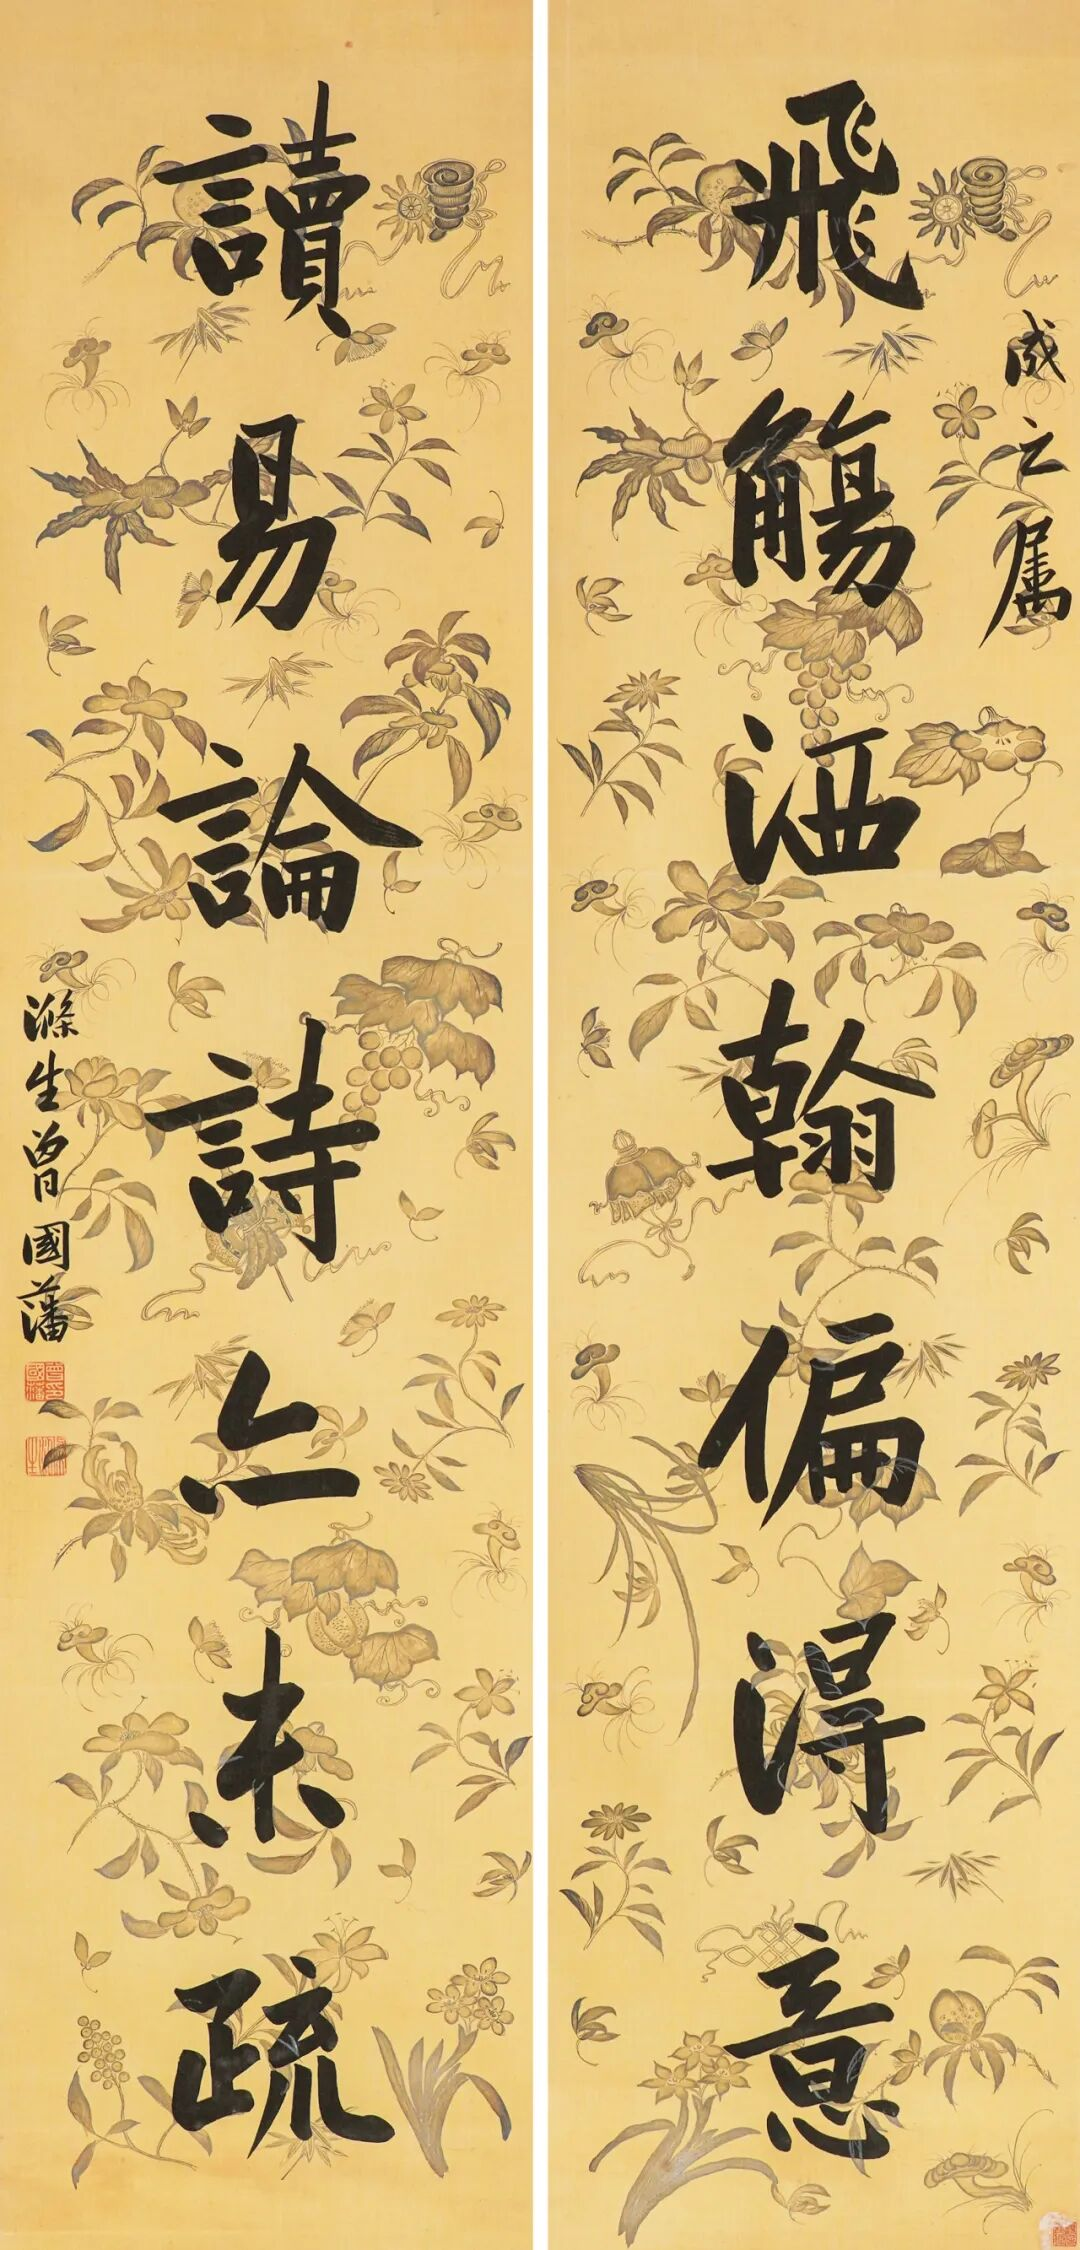 飛觴洒翰偏得意
成之属
讀易論詩亦未疏
滌生曾國藩